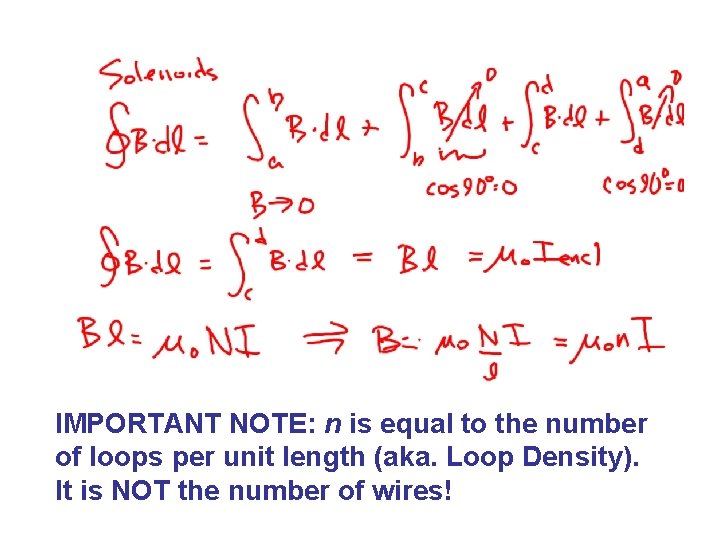 Solenoids
∮B·dl = ∫_a^b B·dl + ∫_b^c B·dl→0 + ∫_c^d B·dl + ∫_d^a B·dl→0
B→0 cos90°=0 cos90°=0
∮B·dl = ∫_c^d B·dl = Bl = μ₀I_encl
Bl = μ₀NI ⇒ B = μ₀ N/l I = μ₀nI
IMPORTANT NOTE: n is equal to the number
of loops per unit length (aka. Loop Density).
It is NOT the number of wires!